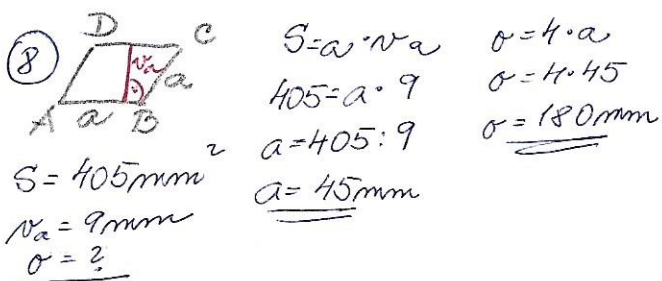 8
D C
vₐ
a
A a B
S = 405mm²
vₐ = 9mm
o = ?
S = a · vₐ
405 = a · 9
a = 405 : 9
a = 45mm
o = 4 · a
o = 4 · 45
o = 180mm